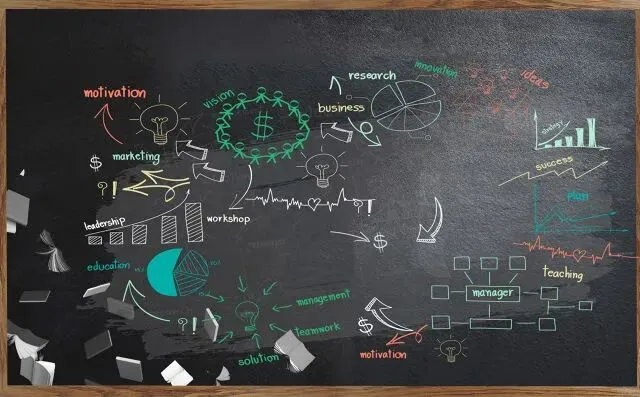 motivation
vision
research
innovation
ideas
business
$
strategy
$
marketing
success
? !
leadership
workshop
? !
plan
$
education
teaching
manager
management
? !
$
teamwork
motivation
solution